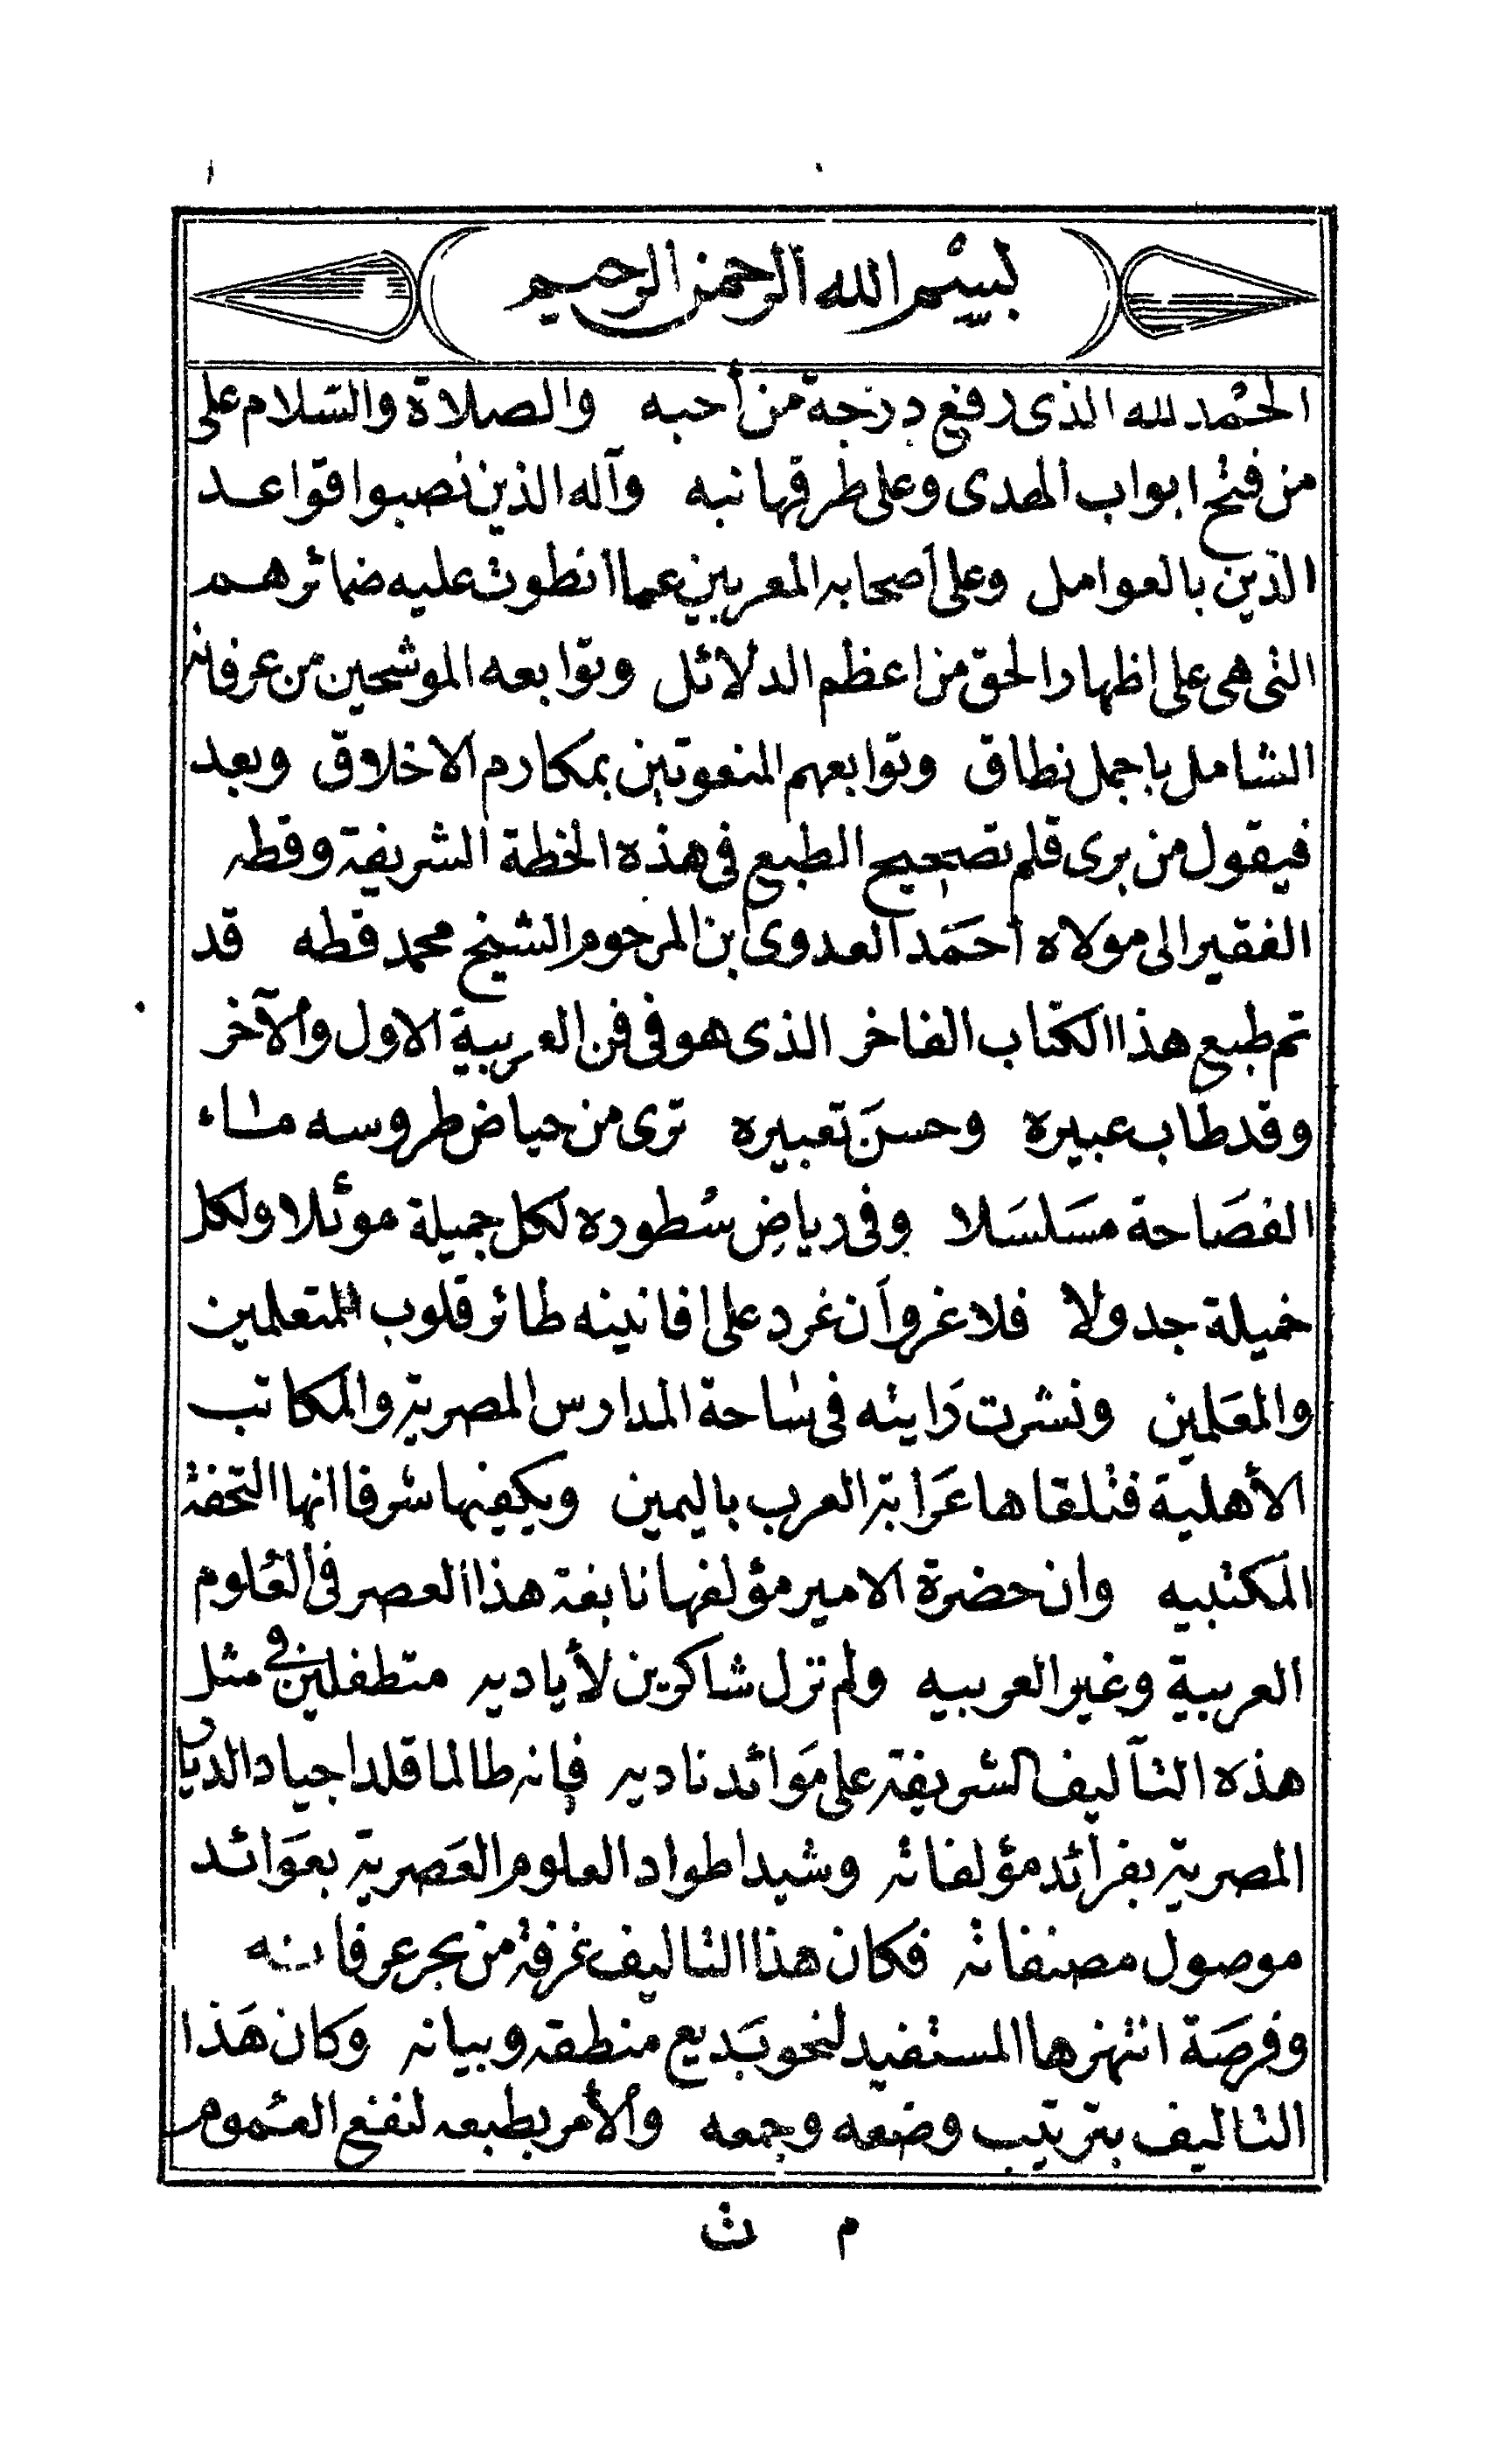 بسم الله الرحمن الرحيم
الحمد لله الذى رفع درجة من أحبه والصلاة والسلام على
من فتح ابواب الهدى وعلى طرقها نبه وآله الذين نصبوا قواعد
الدين بالعوامل وعلى أصحابه المعربين عما انطوت عليه ضمائرهم
التى هى على اظهار الحق من اعظم الدلائل وتوابعه الموشحين من عرفانه
الشامل باجمل نطاق وتوابعهم المنعوتين بمكارم الاخلاق وبعد
فيقول من برى قلم تصحيح الطبع فى هذه الخطة الشريفة وقطه
الفقير الى مولاه أحمد العدوى ابن المرحوم الشيخ محمد قطه قد
تم طبع هذا الكتاب الفاخر الذى هو فى فن العربية الاول والآخر
وقد طاب عبيره وحسن تعبيره ترى من حياض طروسه ماء
الفصاحة مسلسلا وفى رياض سطوره لكل جميلة موئلا ولكل
خميلة جدولا فلا غرو أن غرد على افانينه طائر قلوب المتعلمين
والمعلمين ونشرت رايته فى ساحة المدارس المصرية والمكاتب
الأهلية فتلقاها عرابة العرب باليمين ويكفيها شرفا انها التحفة
المكتبيه وان حضرة الامير مؤلفها نابغة هذا العصر فى العلوم
العربية وغير العربيه ولم نزل شاكرين لأياديه متطفلين فى مثل
هذه التآليف الشريفة على موائد ناديه فإنه طالما قلد اجياد الديار
المصرية بفرائد مؤلفاته وشيد اطواد العلوم العصرية بعوائد
موصول مصنفاته فكان هذا التاليف غرفة من بحر عرفانه
وفرصة انتهزها المستفيد لنحو بديع منطقه وبيانه وكان هذا
التاليف بترتيب وضعه وجمعه والأمر بطبعه لنفع العموم
م ث